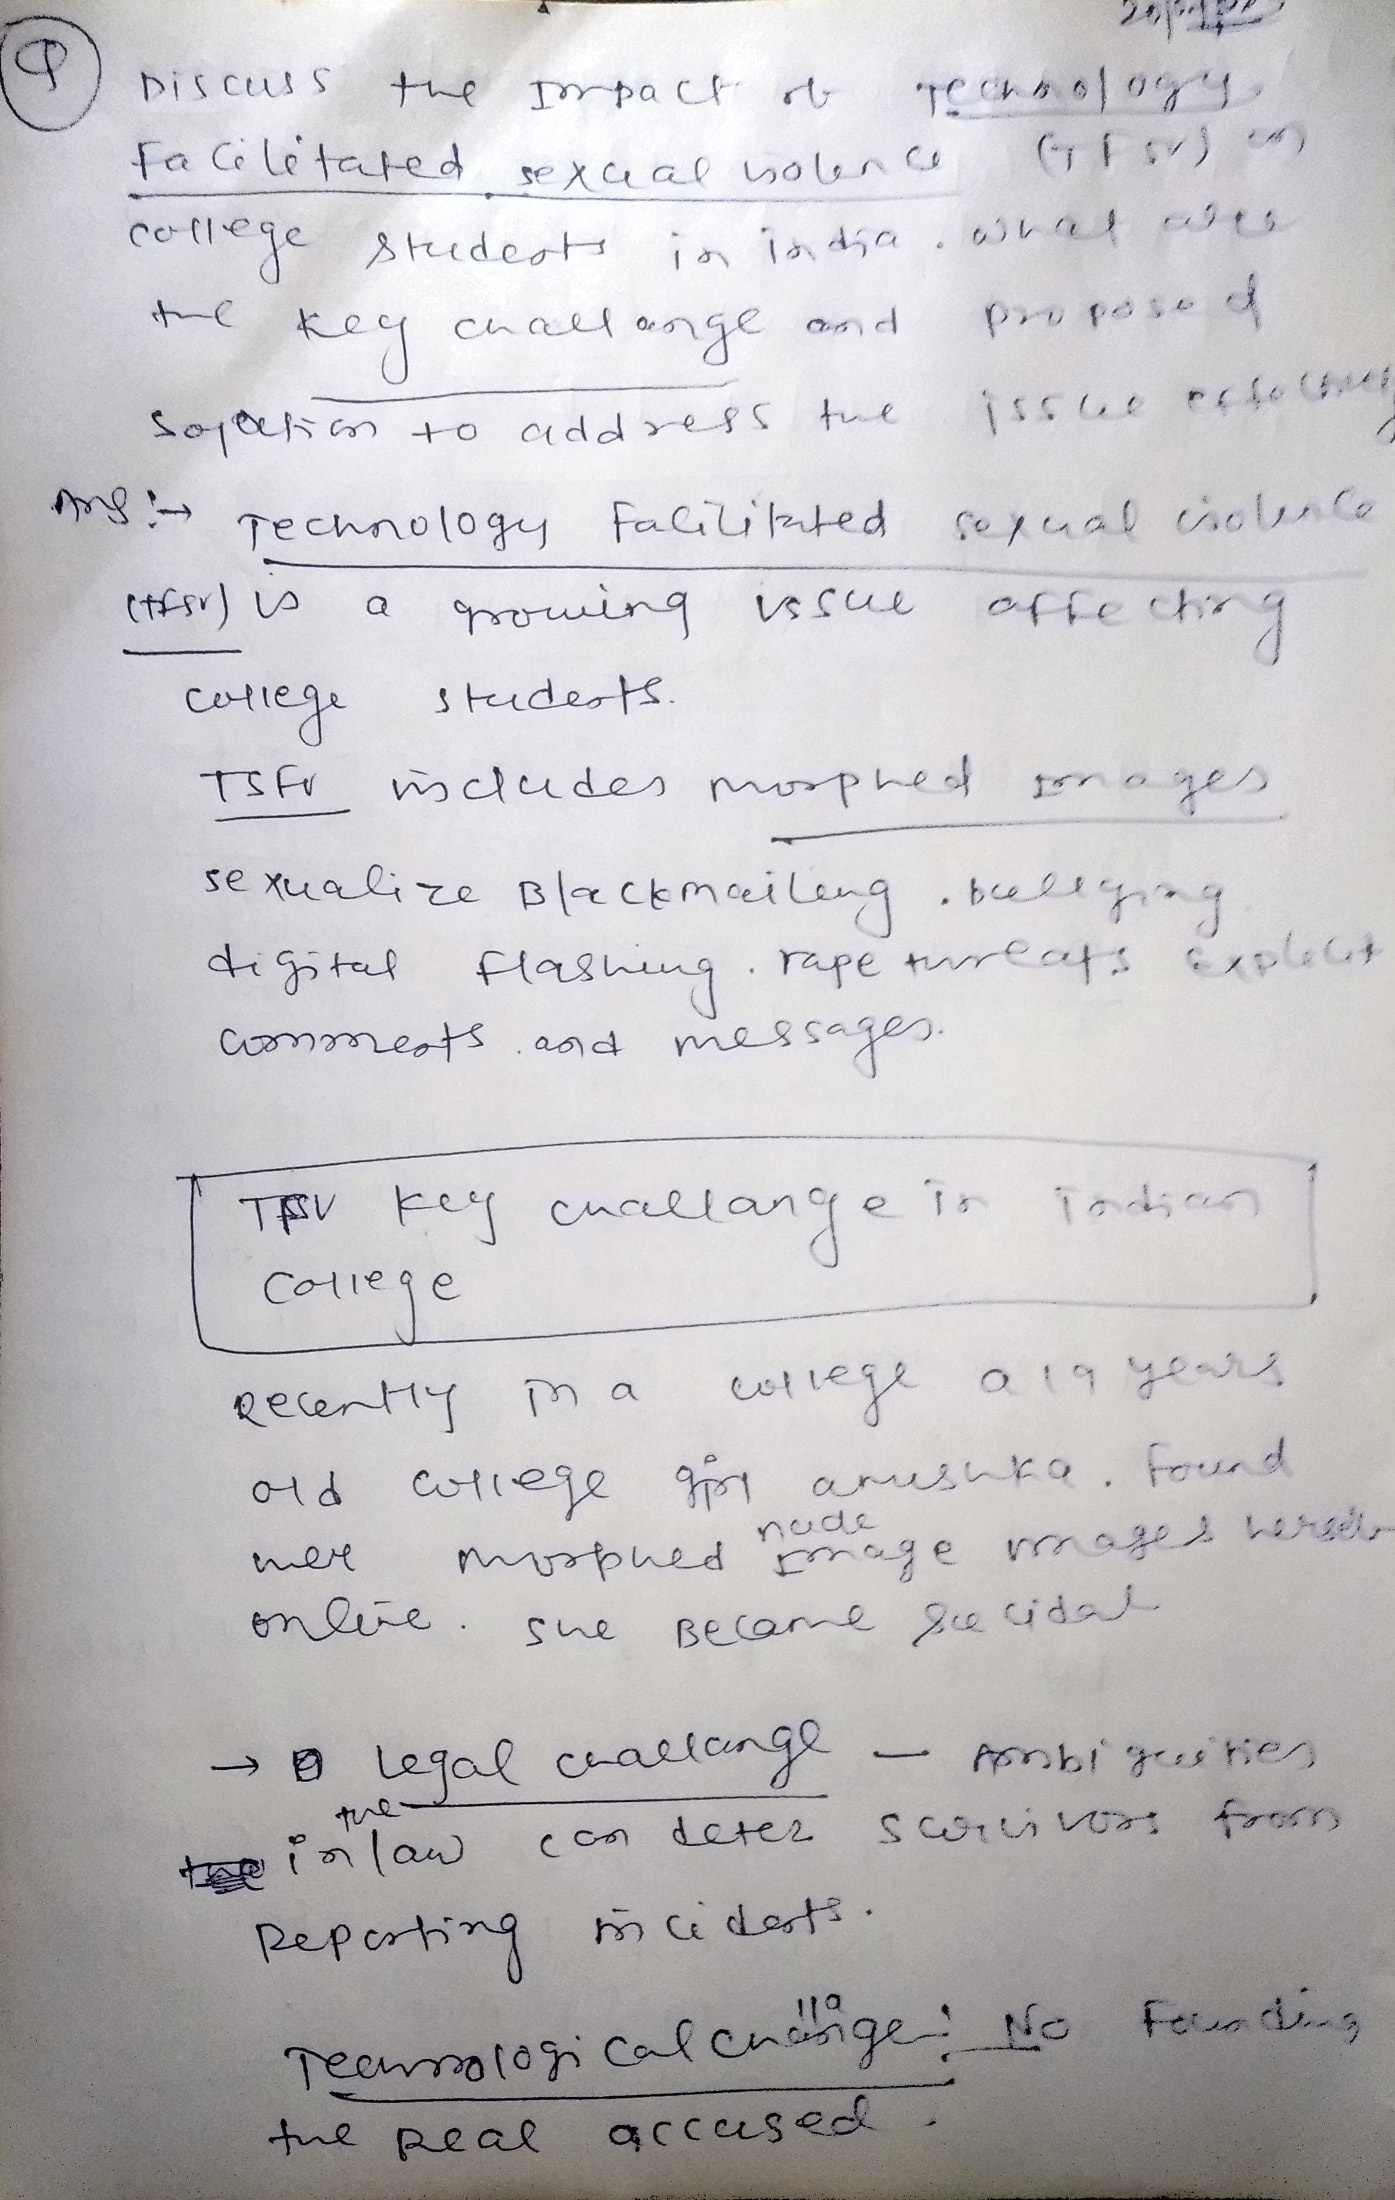 Q Discuss the Impact of Technology
facilitated sexual violence (TFSV) on
college students in india. what are
the key challange and proposed
solution to address the issue
Ans:→ Technology Facilitated sexual violence
(tfsv) is a growing issue affecting
college students.
TSFV includes morphed images
sexualize Blackmailing. bullying
digital flashing. rape threats explicit
comments. and messages.
TFSV key challange in indian
college
Recently in a college a 19 years
old college girl anushka. found
her morphed nude image images
online. she Became suicidal
→ legal challange – Ambiguities
in the law can deter survivors from
Reporting incidents.
Technological challange: No Founding
the Real accused.